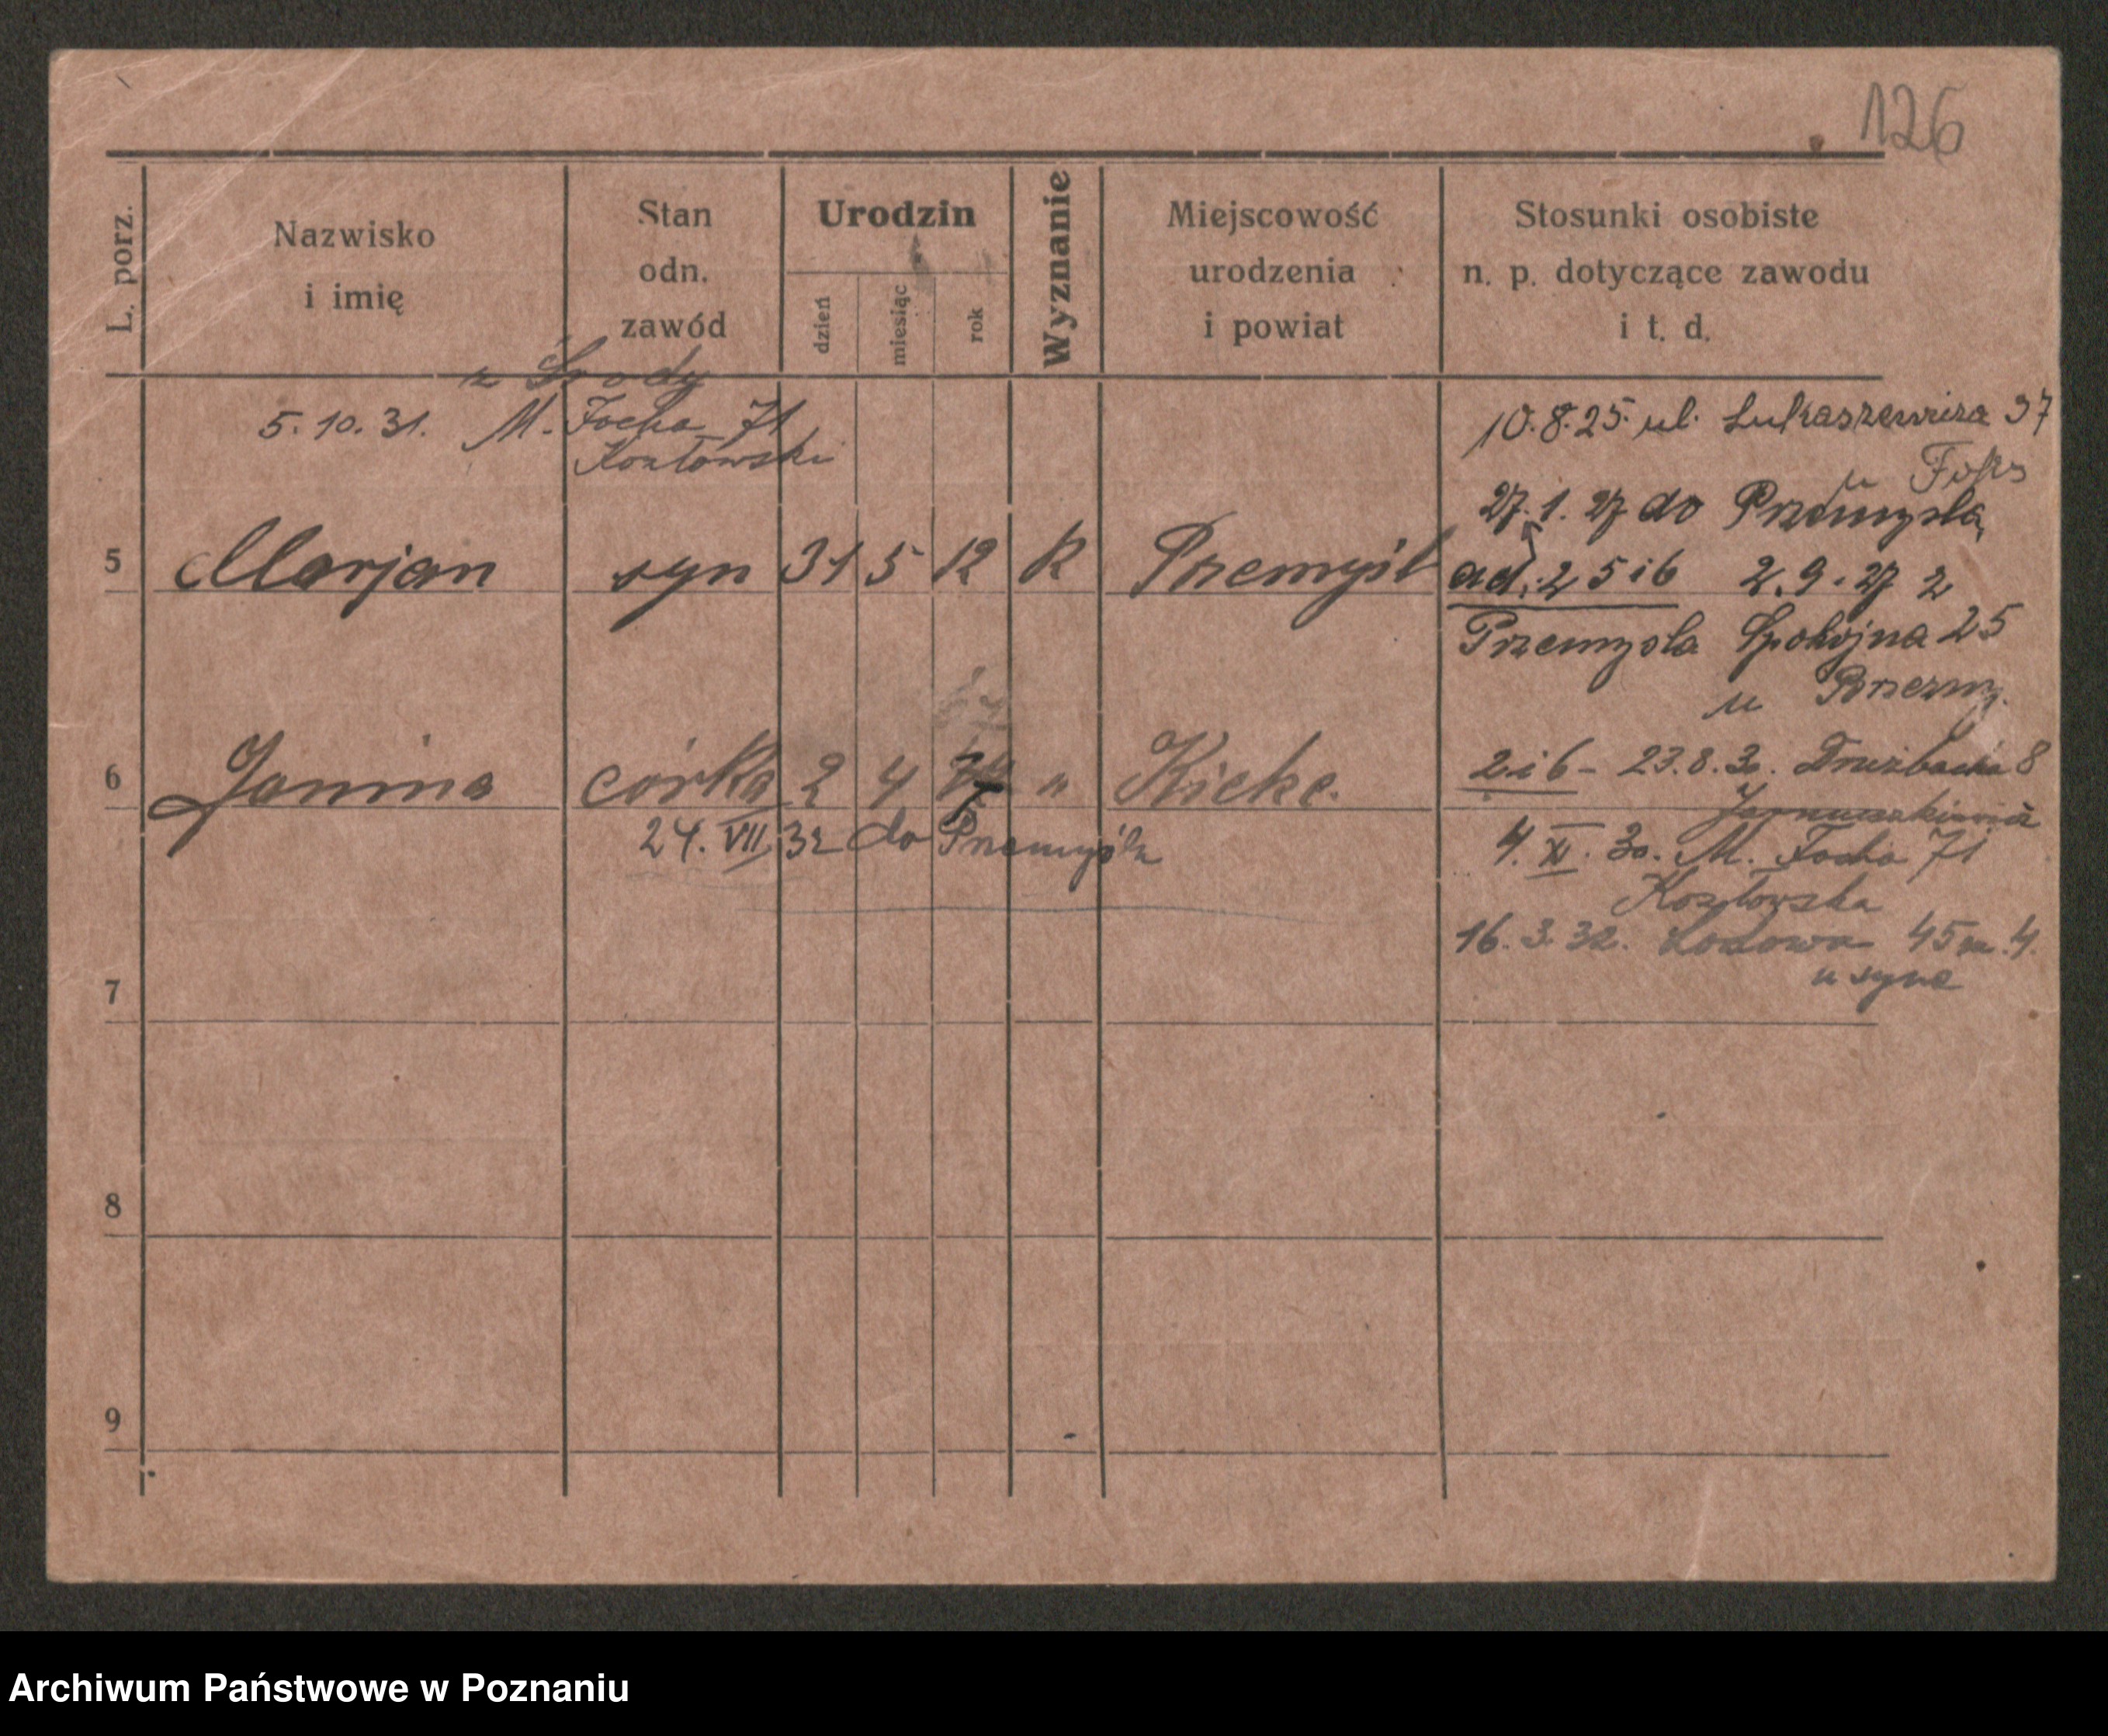 126
L. porz.
Nazwisko
i imię
Stan
odn.
zawód
Urodzin
dzień
miesiąc
rok
Wyznanie
Miejscowość
urodzenia
i powiat
Stosunki osobiste
n. p. dotyczące zawodu
i t. d.
z Środy
5.10.31. M. Focha 71
Kozłowski
10.8.25. ul. Łukaszewicza 37
u
27.1.27 do Przemyśla
5 Marjan syn 31 5 12 k Przemyśl
ad. 2 5 i 6 2.9.27 z
Przemyśla Spokojna 25
u
6 Janina córka 2 4 " Kicke.
2 i 6 - 23.8.30. Drużbacka 8
24. VII 32 do Przemyśla
4. XI. 30. M. Focha 71
Kozłowska
16.3.32. Łodowa 45 m. 4.
u syna
7
8
9
Archiwum Państwowe w Poznaniu